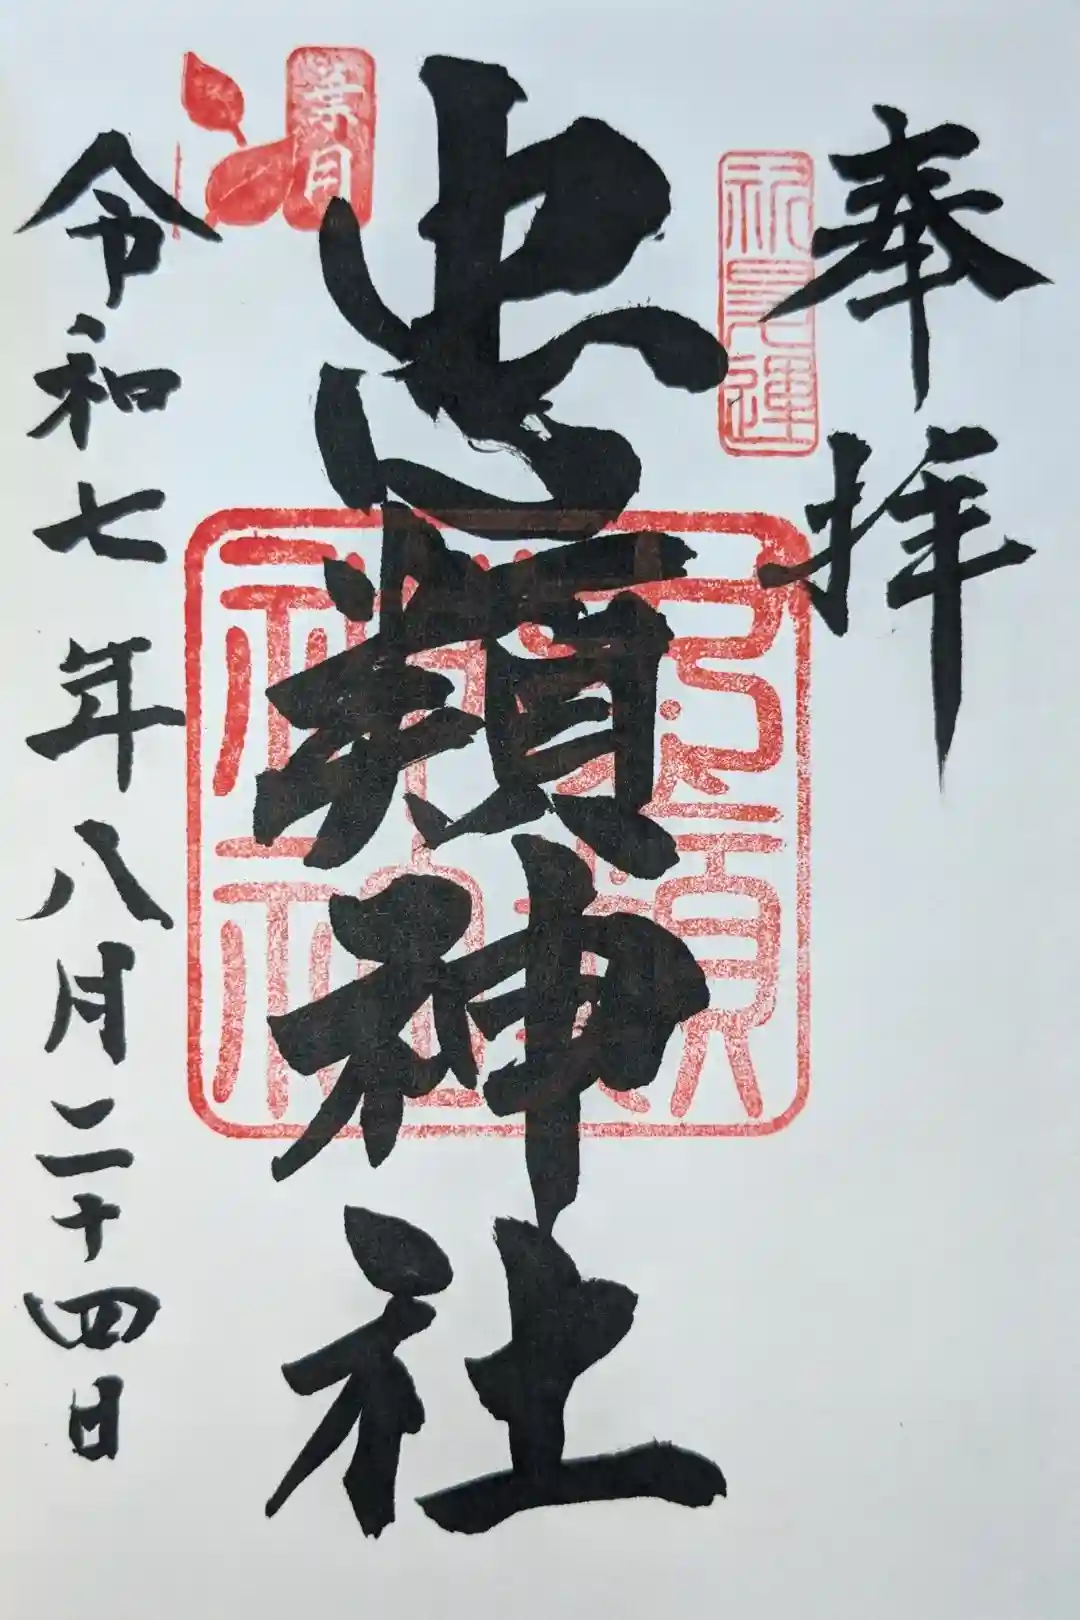 奉拝
忠類神社
令和七年八月二十四日
葉月
忠類
神社